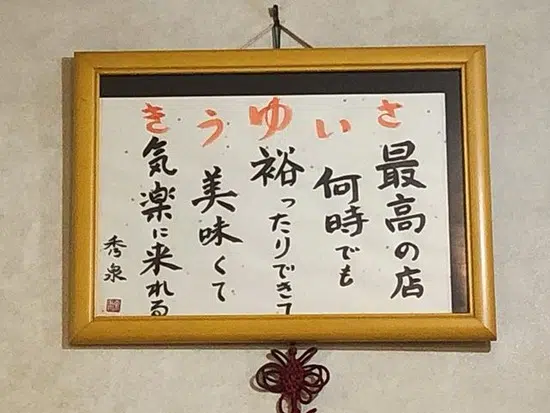 さいゆうき
最高の店
何時でも
裕ったりできて
美味くて
気楽に来れる
秀泉